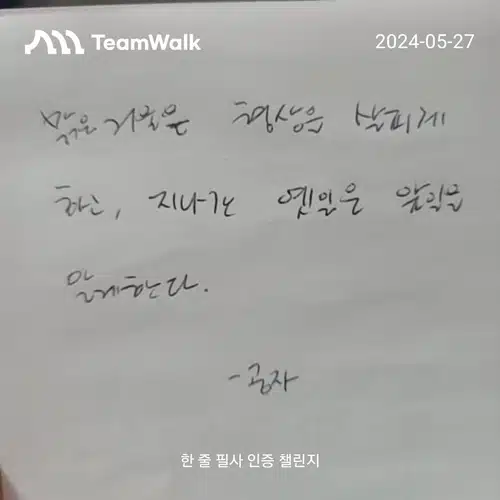 TeamWalk
2024-05-27
맑은 거울은 형상을 살피게
하고, 지나간 옛일은 앞일을
알게한다.
- 공자
한 줄 필사 인증 챌린지